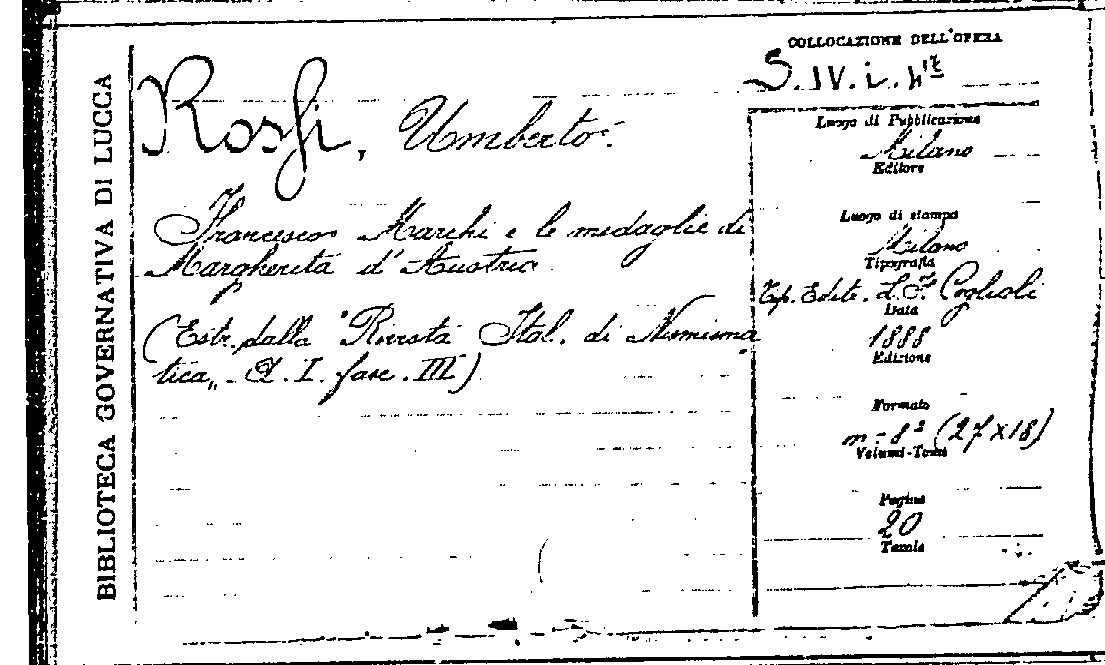 BIBLIOTECA GOVERNATIVA DI LUCCA
COLLOCAZIONE DELL'OPERA
S. IV. i. 4
Rossi, Umberto.
Francesco Marchi e le medaglie di
Margherita d'Austria
(Estr. dalla "Rivista Ital. di Numisma
tica„. A. I. fasc. III)
Luogo di Pubblicazione
Milano
Editore
Luogo di stampa
Milano
Tipografia
Tip. Edit. L. F. Cogliati
Data
1888
Edizione
Formato
in-8° (27×18)
Volumi-Tomi
Pagine
20
Tavole